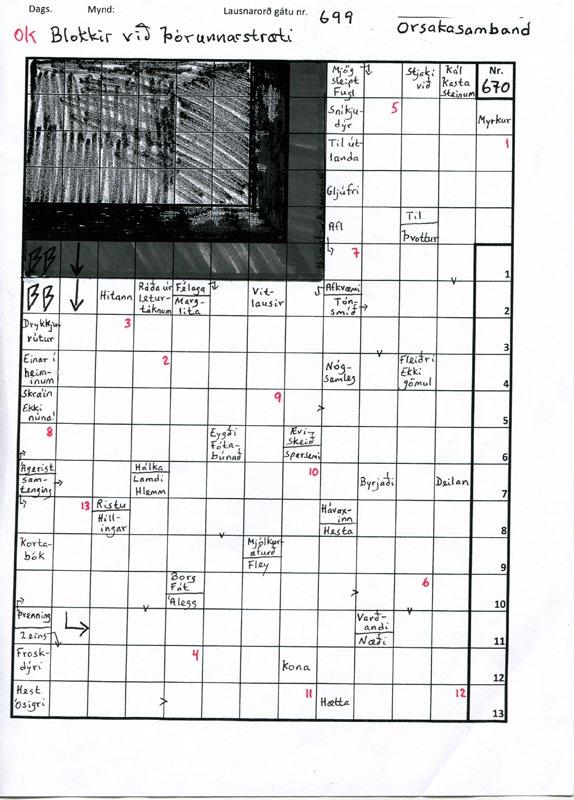 Dags. Mynd: Lausnarorð gátu nr. 699
OK Blokkir við Þórunnarstræti Orsakasamband
Mjög sleipt Fugl
Stjaki við
Kál Kasta steinum
Nr. 670
Sníkjudýr
5
Myrkur
Til útlanda
1
Gljúfri
Afl
Til
Þvottur
7
BB
1
BB
Hitann
Ráða úr leturtáknum
Félaga
Marglita
Vitlausir
Afkvæmi
Tónsmíð
2
Drykkjurútur
3
3
Einar í heiminum
2
Nógsamleg
Fleiðri Ekki gömul
4
Skráin Ekki núna!
9
5
8
Eygði Fótabúnað
Æviskeið
Sparsemi
6
Ágerist
Samtenging
Hálka
Lamdi Hlemm
10
Byrjaði
Deilan
7
13
Ristu
Hillingar
Hávaxinn
Hesta
8
Kortabók
Mjólkurafurð
Fley
9
Borg Fát
Álegg
6
10
Þrenning
2 eins
Varðandi
Næði
11
Froskdýri
4
Kona
12
Hest Ósigri
11
Hætta
12
13